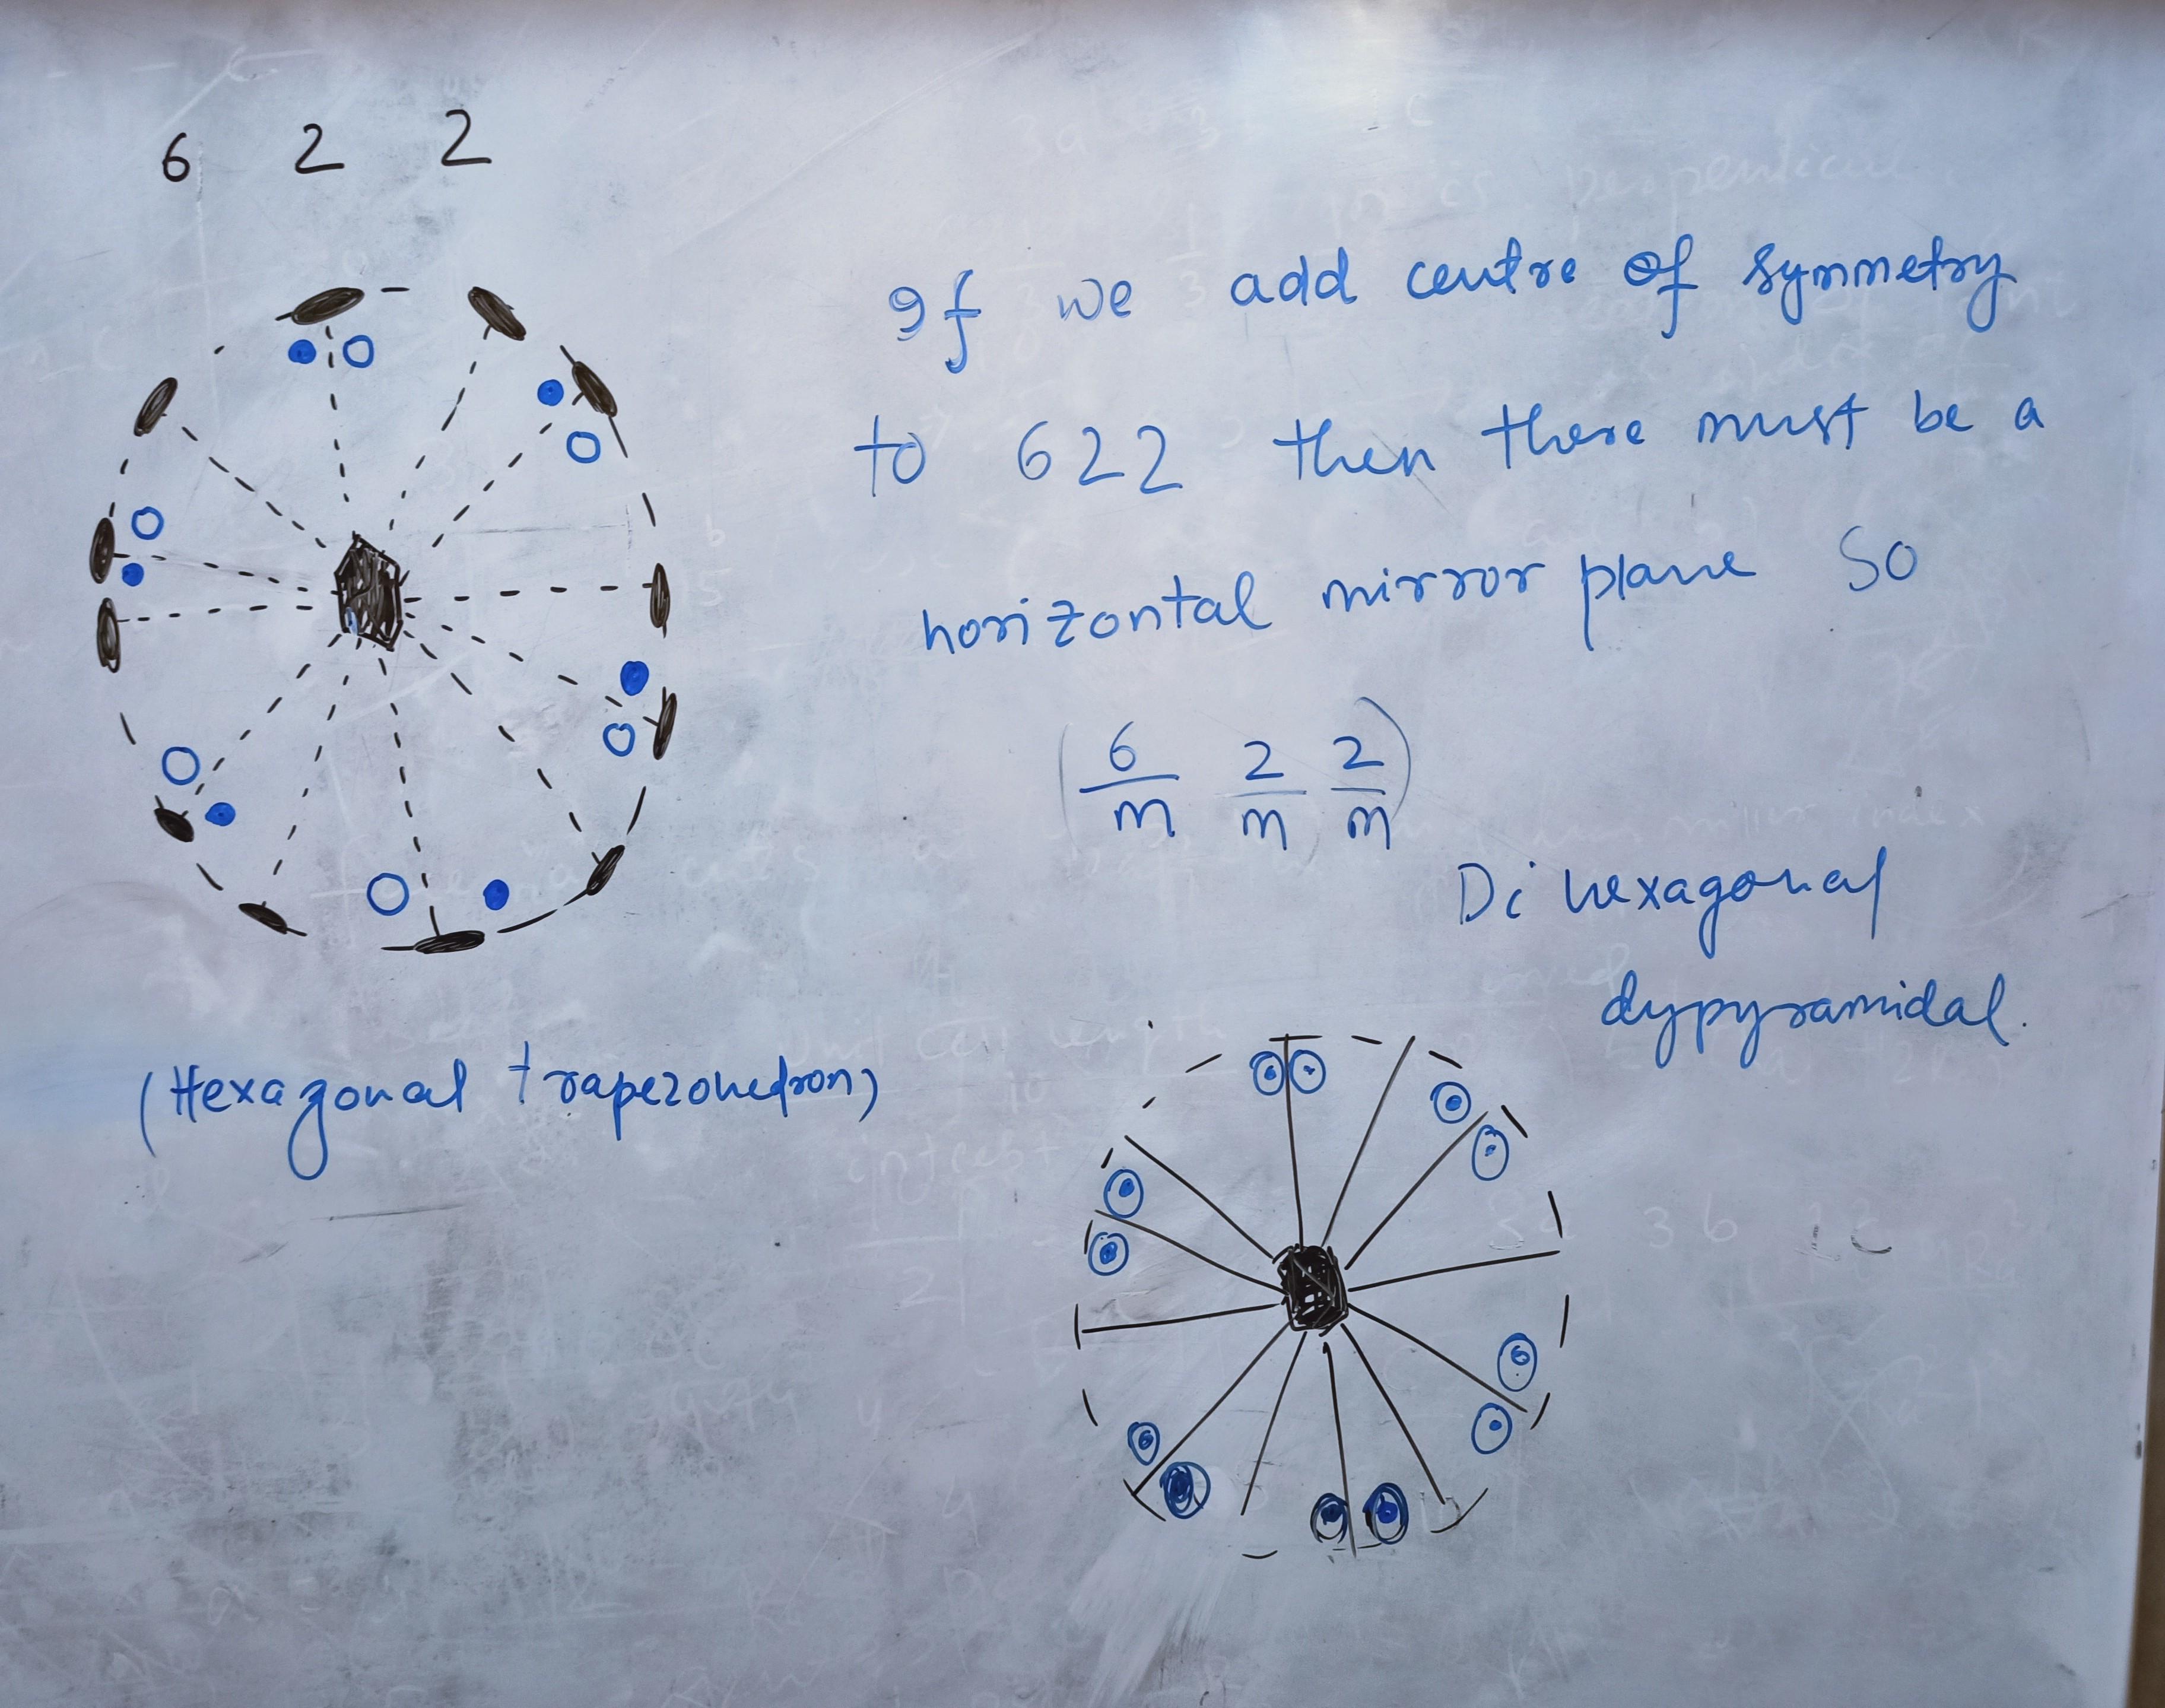 6 2 2
If we add centre of symmetry
to 622 then there must be a
horizontal mirror plane So
(6/m 2/m 2/m)
Di hexagonal
dypyramidal.
(Hexagonal trapezohedron)